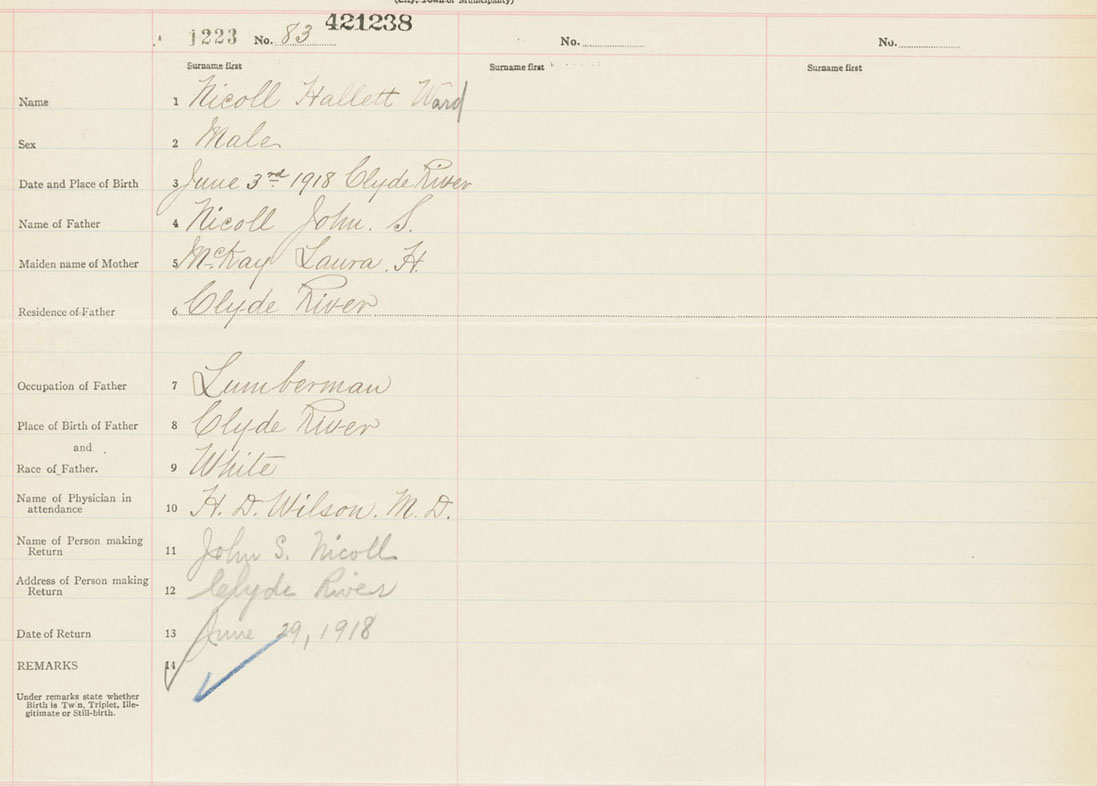 (City, Town or Municipality)
1223 No. 83 421238 No. No.
Surname first Surname first Surname first
Name 1 Nicoll Hallett Ward
Sex 2 Male
Date and Place of Birth 3 June 3rd 1918 Clyde River
Name of Father 4 Nicoll John. S.
Maiden name of Mother 5 McKay Laura. H.
Residence of Father 6 Clyde River
Occupation of Father 7 Lumberman
Place of Birth of Father 8 Clyde River
and
Race of Father. 9 White
Name of Physician in
attendance 10 H. D. Wilson. M. D.
Name of Person making
Return 11 John S. Nicoll
Address of Person making
Return 12 Clyde River
Date of Return 13 June 29, 1918
REMARKS 14
Under remarks state whether
Birth is Twin, Triplet, Ille-
gitimate or Still-birth.